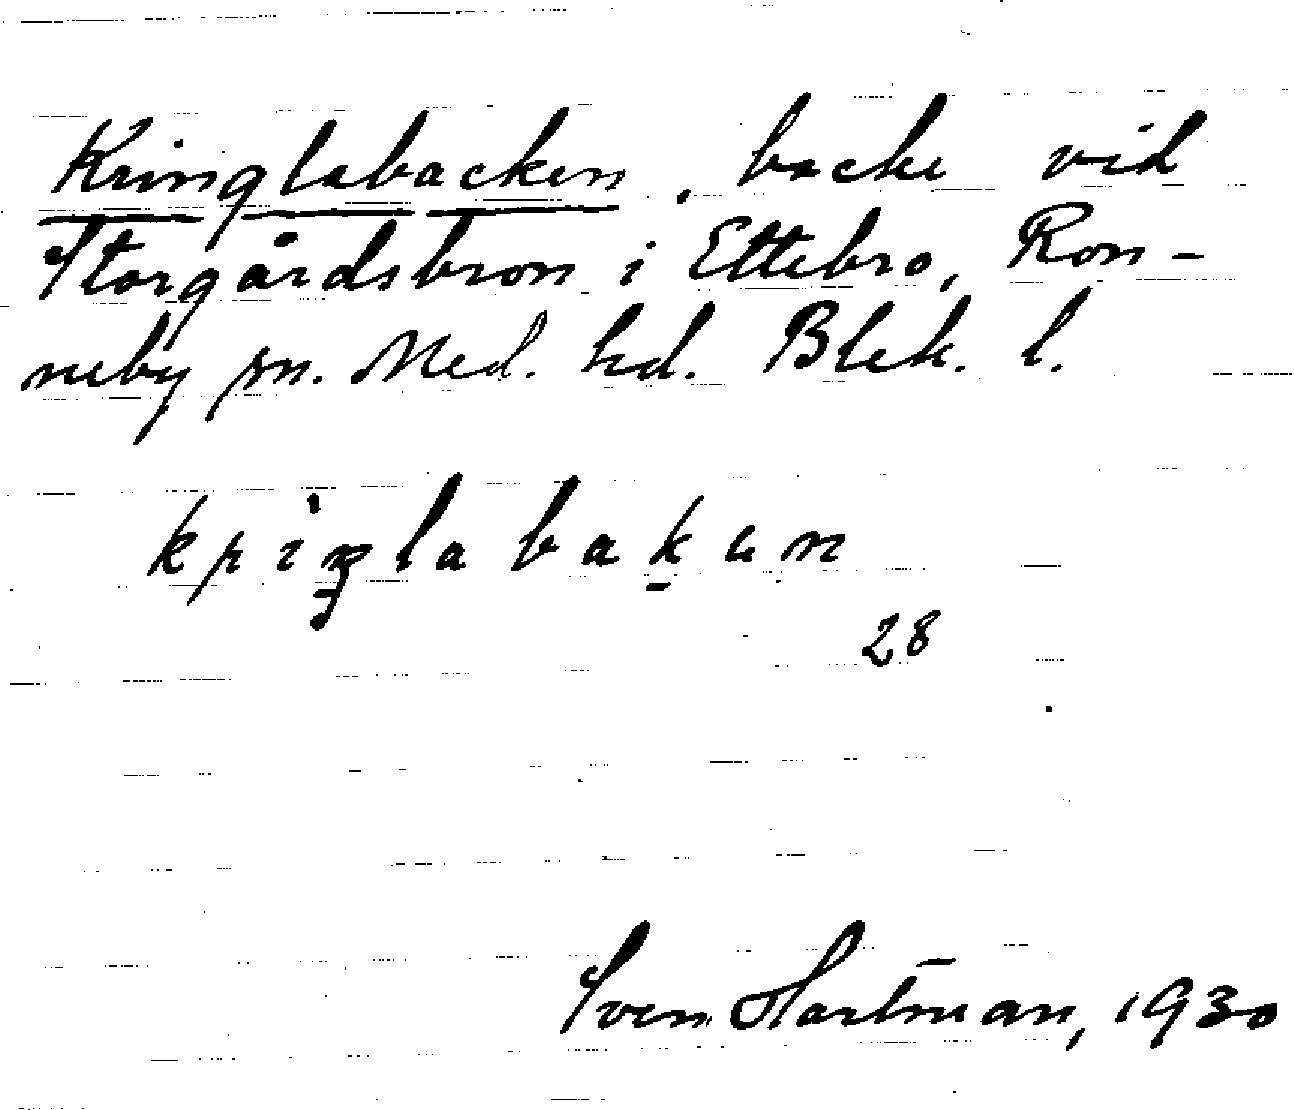 Kringlabacken, backe vid
Storgårdsbron i Ettebro, Ron-
neby sn. Med. hd. Blek. l.
28
Sven Hartman, 1930